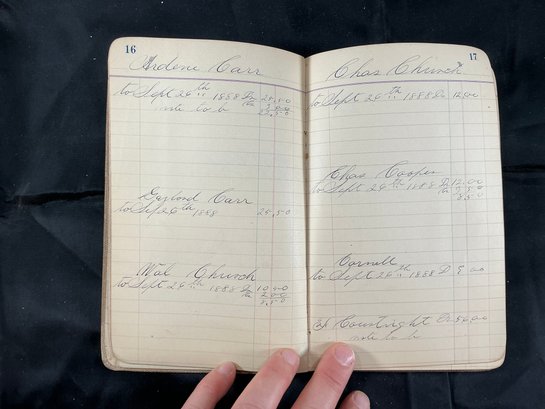 16
Ardene Carr
to Sept 26th 1888 Dr 28.50
Cr 3.00
note to b 25.50
Gaylord Carr
to Sep 26th 1888 25.50
Wal Church
to Sept 26th 1888 Dr 10.50
Cr 2.00
8.50
17
Chas Church
to Sept 26th 1888 Dr 12.00
Chas Cooper
to Sept 26th 1888 Dr 12.00
Cr 3.50
8.50
Cornell
to Sept 26th 1888 D 9.00
Courtright Dr 56.00
note to b